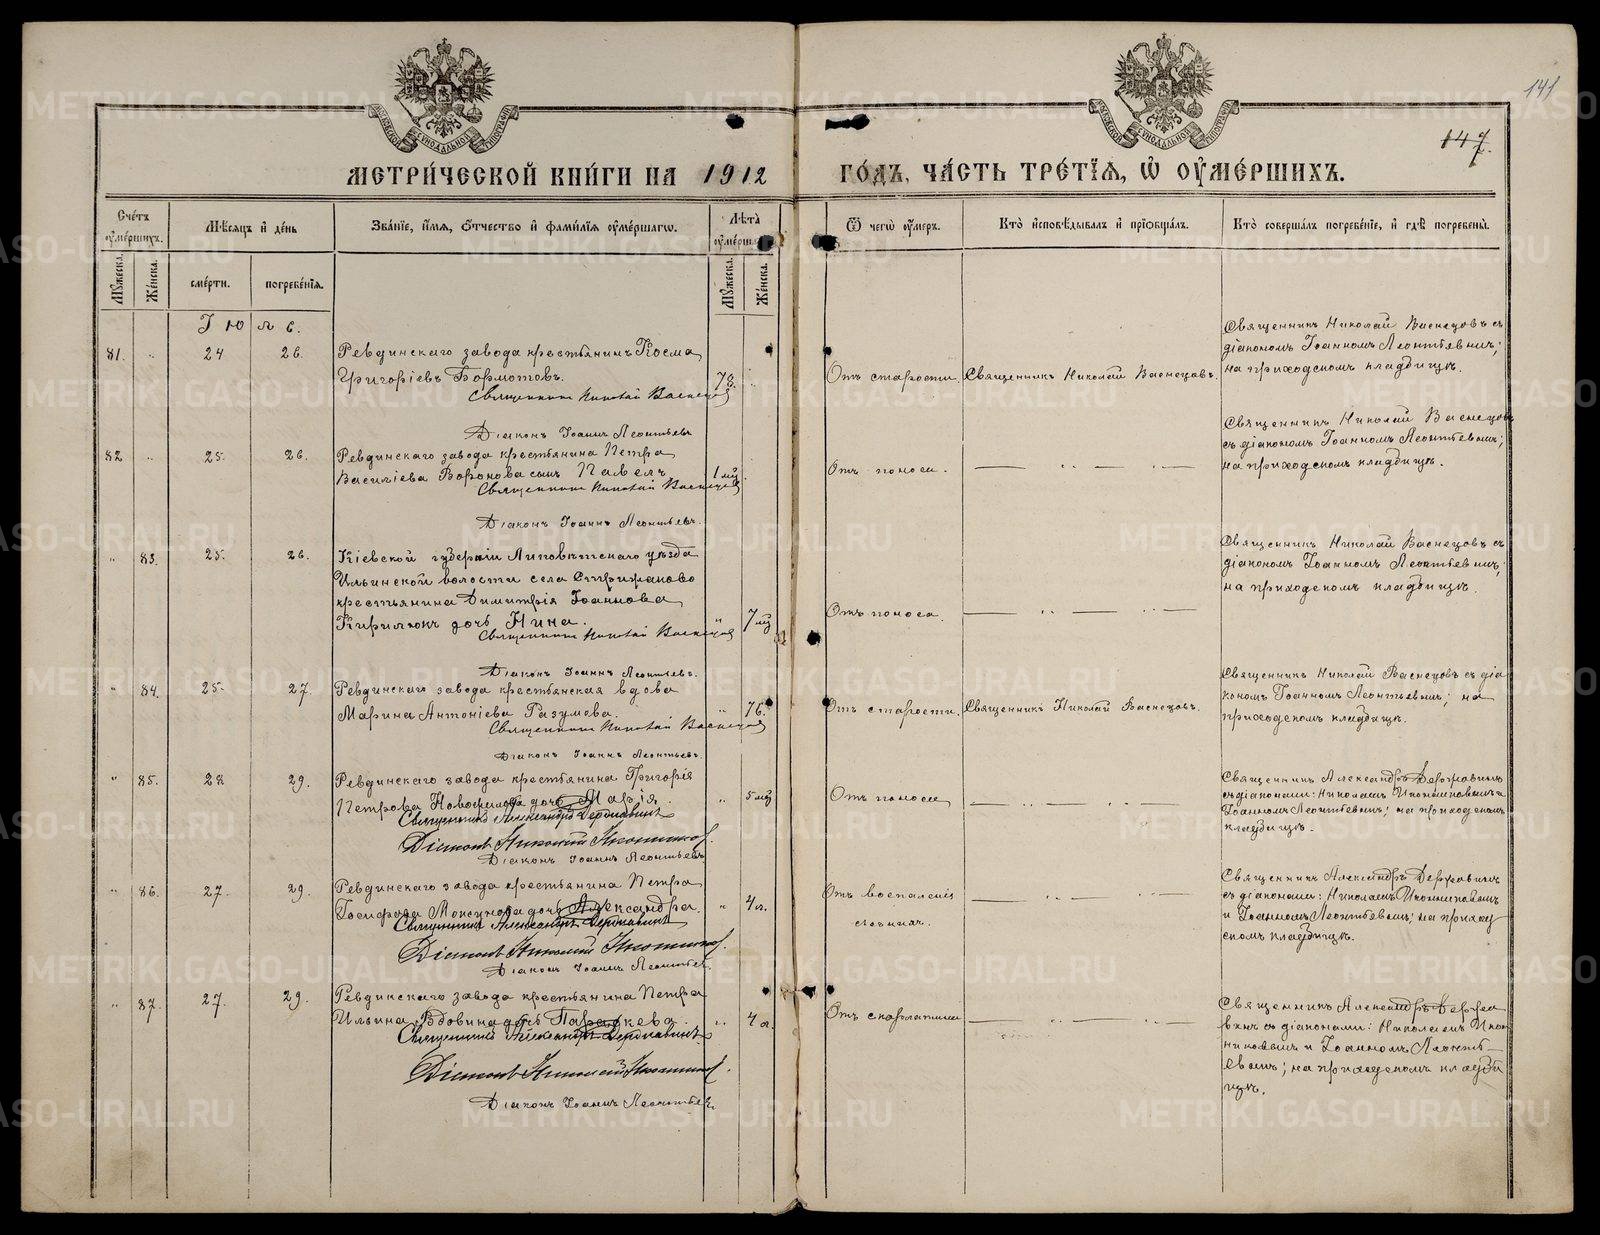 141
147.
МЕТРИ́ЧЕСКОЙ КНИ́ГИ НА 1912 ГО́ДЪ, ЧА́СТЬ ТРЕ́ТІѦ, Ѡ ОУМЕ́РШИХЪ.
Сче́тъ оумершихъ.
Мѣ́сѧцъ и де́нь
Зва́нїе, и́мѧ, о́тчество и фами́лїѧ оуме́ршагѡ.
Лѣ́та оуме́ршаго
Ѿ чегѡ̀ оумеръ.
Кто̀ исповѣ́дывалъ и прїѡбща́лъ.
Кто̀ соверша́лъ погребе́нїе, и гдѣ̀ погребены̀.
Мꙋжеска.
Же́нска.
сме́рти.
погребе́нїѧ.
Мꙋжеска.
Же́нска.
Іюль.
81. " 24 26. Ревдинскаго завода крестьянинъ Косма
Григоріевъ Бормотовъ. 78. "
Священникъ Николай Васнецовъ
Діаконъ Іоаннъ Леонтьевъ
Отъ старости. Священникъ Николай Васнецовъ.
Священникъ Николай Васнецовъ съ
діакономъ Іоанномъ Леонтьевымъ;
на приходскомъ кладбищѣ.
82 " 25. 26. Ревдинскаго завода крестьянина Петра
Василіева Воронова сынъ Павелъ 1 мц
Священникъ Николай Васнецовъ
Діаконъ Іоаннъ Леонтьевъ.
Отъ поноса. — " — " —
Священникъ Николай Васнецовъ
съ діакономъ Іоанномъ Леонтьевымъ;
на приходскомъ кладбищѣ.
" 83. 25. 26. Кіевской губерніи Липовѣтскаго уѣзда
Ильинской волости села Стрижаково
крестьянина Димитрія Іоаннова
Кирилюкъ дочь Нина. " 7 мц
Священникъ Николай Васнецовъ
Діаконъ Іоаннъ Леонтьевъ.
Отъ поноса. — " — " —
Священникъ Николай Васнецовъ съ
діакономъ Іоанномъ Леонтьевымъ;
на приходскомъ кладбищѣ.
" 84. 25. 27. Ревдинскаго завода крестьянская вдова
Марина Антоніева Разумова. " 76.
Священникъ Николай Васнецовъ
Діаконъ Іоаннъ Леонтьевъ.
Отъ старости. Священникъ Николай Васнецовъ.
Священникъ Николай Васнецовъ съ діа
кономъ Іоанномъ Леонтьевымъ; на
приходскомъ кладбищѣ.
" 85. 28 29. Ревдинскаго завода крестьянина Григорія
Петрова Новоселова дочь Марія. " 5 мц
Священникъ Александръ Державинъ
Діаконъ Николай Иконниковъ.
Діаконъ Іоаннъ Леонтьевъ.
Отъ поноса — " — " —
Священникъ Александръ Державинъ
съ діаконами: Николаемъ Иконниковымъ и
Іоанномъ Леонтьевымъ; на приходскомъ
кладбищѣ.
" 86. 27. 29. Ревдинскаго завода крестьянина Петра
дочь Александра. " 4 л.
Священникъ Александръ Державинъ
Діаконъ Николай Иконниковъ.
Діаконъ Іоаннъ Леонтьевъ
Отъ воспаленія
— " —
Священникъ Александръ Державинъ
съ діаконами: Николаемъ Иконниковымъ
и Іоанномъ Леонтьевымъ; на приход
скомъ кладбищѣ.
" 87. 27. 29. Ревдинскаго завода крестьянина Петра
Ильина Вдовина дочь Параскева. " 4 л.
Священникъ Александръ Державинъ
Діаконъ Николай Иконниковъ.
Діаконъ Іоаннъ Леонтьевъ.
Отъ скарлатины — " — " —
Священникъ Александръ Держа
винъ съ діаконами: Николаемъ Икон
никовымъ и Іоанномъ Леонть-
евымъ; на приходскомъ кладби
щѣ.
METRIKI.GASO-URAL.RU